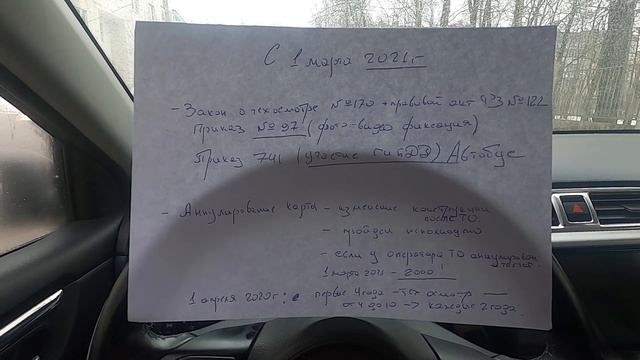 С 1 марта 2021г
- Закон о техосмотре №170 + правовой акт ФЗ №122
Приказ №97 (фото-видео фиксация)
Приказ 741 (участие ГИБДД) Автобус
- Аннулирование карты - изменение конструкции
после ТО.
- пройден
- если у оператора ТО аннулирован
1 марта 2021 - 2000!
1 апреля 2020г: первые 4 года - тех осмотр —
от 4 до 10 -> каждые 2 года.